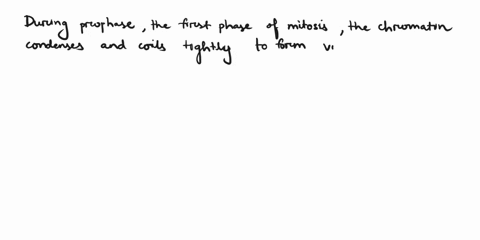 During prophase, the first phase of mitosis, the chromatin
condenses and coils tightly to form vi